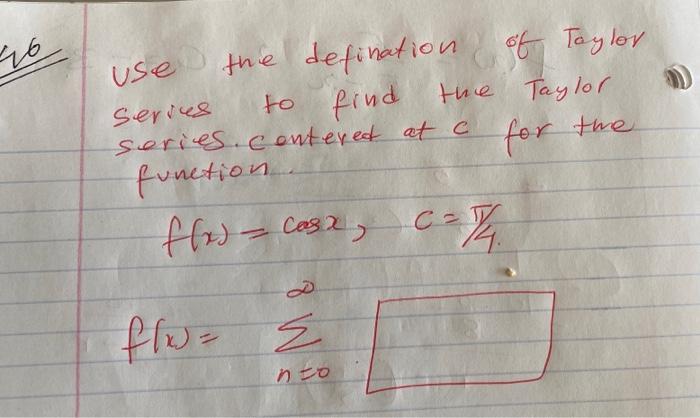 46
use the defination of Taylor
series to find the Taylor
series. centered at c for the
function.
f(x) = cosx, c = π/4.
f(x) = ∞ Σ n=0